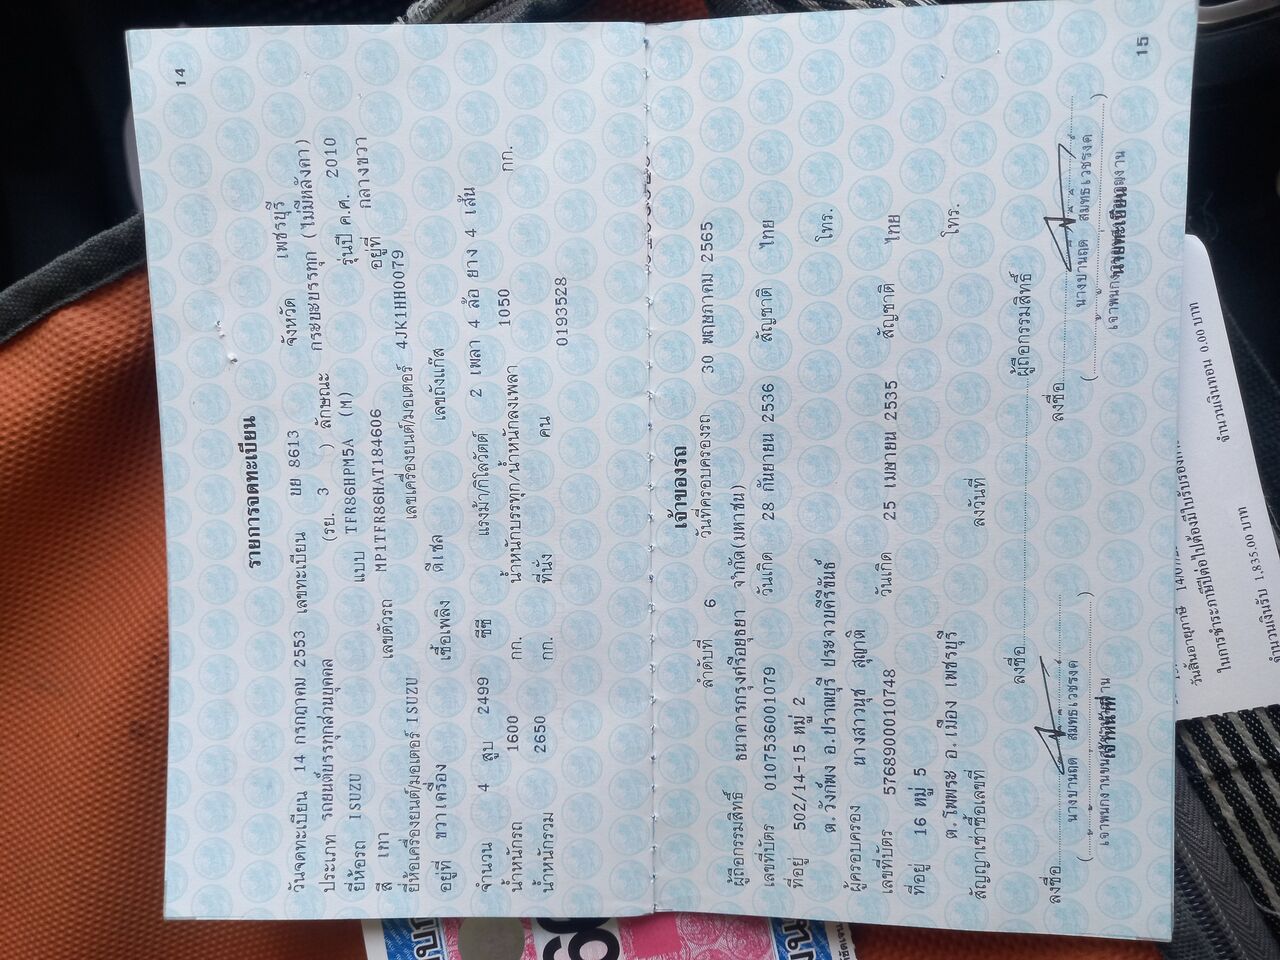 14
รายการจดทะเบียน
วันจดทะเบียน 14 กรกฎาคม 2553 เลขทะเบียน ขย 8613 จังหวัด เพชรบุรี
ประเภท รถยนต์บรรทุกส่วนบุคคล (รย. 3 ) ลักษณะ กระบะบรรทุก (ไม่มีหลังคา)
ยี่ห้อรถ ISUZU แบบ TFR86HPM5A (M) รุ่นปี ค.ศ. 2010
สี เทา เลขตัวรถ MP1TFR86HAT184606 อยู่ที่ กลางขวา
ยี่ห้อเครื่องยนต์/มอเตอร์ ISUZU เลขเครื่องยนต์/มอเตอร์ 4JK1HH0079
อยู่ที่ ขวาเครื่อง เชื้อเพลิง ดีเซล เลขถังแก๊ส
จำนวน 4 สูบ 2499 ซีซี แรงม้า/กิโลวัตต์ 2 เพลา 4 ล้อ ยาง 4 เส้น
น้ำหนักรถ 1600 กก. น้ำหนักบรรทุก/น้ำหนักลงเพลา 1050 กก.
น้ำหนักรวม 2650 กก. ที่นั่ง คน 0193528
15
เจ้าของรถ
ลำดับที่ 6 วันที่ครอบครองรถ 30 พฤษภาคม 2565
ผู้ถือกรรมสิทธิ์ ธนาคารกรุงศรีอยุธยา จำกัด(มหาชน)
เลขที่บัตร 0107536001079 วันเกิด 28 กันยายน 2536 สัญชาติ ไทย
ที่อยู่ 502/14-15 หมู่ 2
ต.วังก์พง อ.ปราณบุรี ประจวบคีรีขันธ์ โทร.
ผู้ครอบครอง นางสาวนุช สุญาติ
เลขที่บัตร 5768900010748 วันเกิด 25 เมษายน 2535 สัญชาติ ไทย
ที่อยู่ 16 หมู่ 5
ต.โพพระ อ.เมือง เพชรบุรี โทร.
สัญญาเช่าซื้อเลขที่ ลงวันที่
ลงชื่อ ผู้ถือกรรมสิทธิ์
ลงชื่อ ลงชื่อ
นางปานฤดี สมทธเวชรงค นางปานฤดี สมทธเวชรงค
นายทะเบียน
วันสิ้นอายุภาษี 14/07/
ในการชำระภาษีปีต่อไปต้องมีใบรับรอง
จำนวนเงินรับ 1,835.00 บาท จำนวนเงินทอน 0.00 บาท